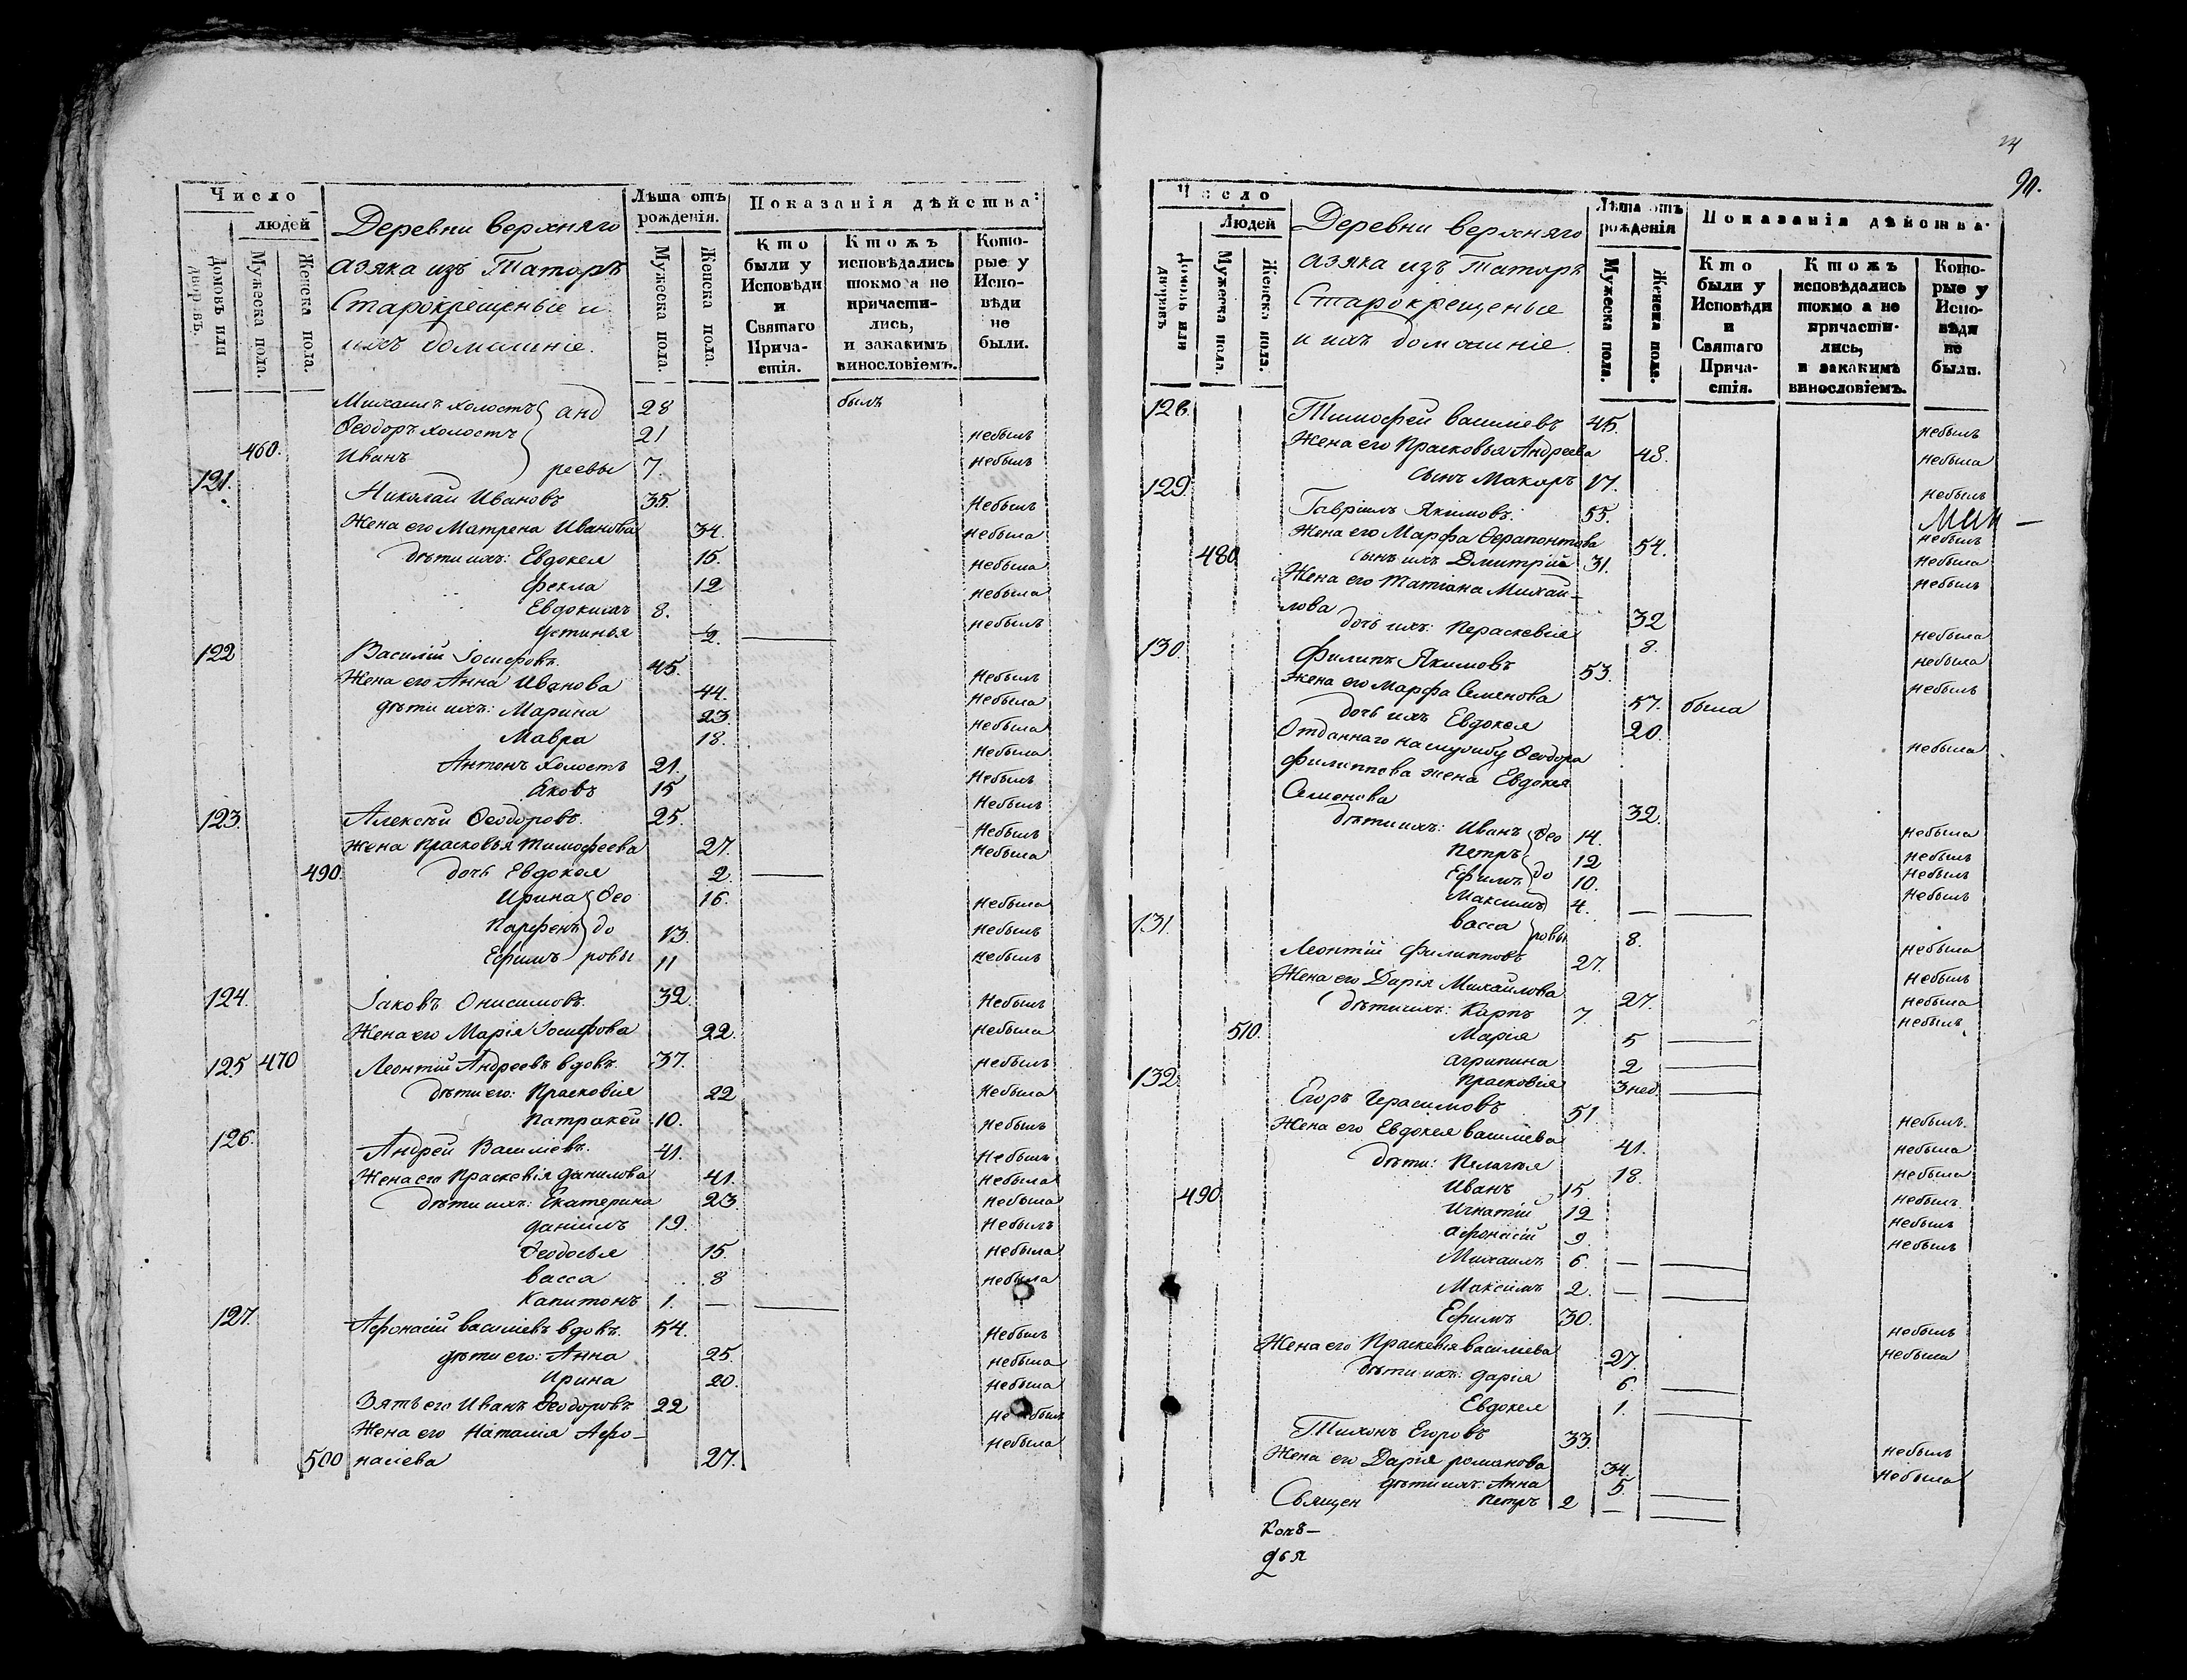 Число
людей
Домовъ или дворовъ.
Мужеска пола.
Женска пола.
Деревни верхняго
азяка изъ Татаръ
Старокрещеные и
ихъ домашніе.
Лѣта отъ рожденія.
Мужеска пола
Женска пола.
Показанія дѣйства:
Кто были у Исповѣди и Святаго Причастія.
Ктожъ исповѣдались токмо а не причастились, и закакимъ винословіемъ.
Которые у Исповѣди не были.
Михаилъ холостъ анд 28 былъ
Ѳеодоръ холостъ 21 небылъ
460. Иванъ реевы 7. небылъ
121. Николай Ивановъ 35. Небылъ
Жена его Матрена Иванова 34. небыла
дѣти ихъ: Евдокея 15. небыла
Фекла 12 небыла
Евдокимъ 8. небылъ
Устинья 2. —
122 Василій Іосифовъ. 45. Небылъ
Жена его Анна Иванова 44. Небыла
дѣти ихъ: Марина 23. небыла
Мавра 18. небыла
Антонъ холостъ 21. Небылъ
Яковъ 15 Небылъ
123. Алексѣй Ѳеодоровъ. 25. Небылъ
жена Прасковья Тимофеева 27. Небыла
490. дочь Евдокея 2. —
Ирина Ѳео 16. небыла
Парфенъ до 13. небылъ
Ефимъ ровы 11 небылъ
124. Іаковъ Онисимовъ. 32. Небылъ
Жена его Марія Іосифова 22. небыла
125 470 Леонтій Андреевъ вдовъ. 37. небылъ
дѣти его: Прасковія 22 Небыла
Патракей 10. небылъ
126. Андрей Василіевъ. 41. Небылъ
Жена его Праскевія Данилова 41. небыла
дѣти ихъ: Екатерина 23 Небыла
Даніилъ 19. Небылъ
Ѳеодосья 15. небыла
Васса 8 небыла
Капитонъ 1. — —
127. Афонасій Василіевъ вдовъ. 54. Небылъ
дѣти его: Анна 25. небыла
Ирина 20. небыла
Зять его Иванъ Ѳеодоровъ 22 небылъ
Жена его Наталія Афо- небыла
500 насіева 27.
24
90.
Число
Людей
Домовъ или дворовъ
Мужеска пола
Женска пола.
Деревни верхняго
азяка изъ Татаръ
Старокрещеные
и ихъ домашніе.
Лѣта отъ рожденія
Мужеска пола.
Женска пола.
Показанія дѣйства:
Кто были у Исповѣди и Святаго Причастія.
Ктожъ исповѣдались токмо а не причастились, и закакимъ винословіемъ.
Которые у Исповѣди не были.
128. Тимофей Василіевъ 45. небылъ
Жена его Прасковья Андреева 48. небыла
сынъ Макаръ 17. небылъ
129. Гавріилъ Якимовъ. 55. небылъ
Жена его Марфа Ферапонтова 54. небыла
480 сынъ ихъ Дмитрій 31. небылъ
Жена его Татіана Михаи-
лова 32 небыла
дочь ихъ: Пераскевія 8. небыла
130. Филипъ Якимовъ 53. небылъ
Жена его Марфа Семенова 57. была
дочь ихъ Евдокея 20. небыла
Отданнаго на службу Ѳеодора
Филиппова жена Евдокея
Семенова 32. небыла
дѣти ихъ: Иванъ Ѳео 14. небылъ
Петръ 12 небылъ
Ефимъ до 10. небылъ
Максимъ 4. — —
Васса ровы 8. небыла
131. Леонтій Филипповъ 27. небылъ
Жена его Дарія Михайлова 27. небыла
дѣти ихъ: Карпъ 7. небылъ
510. Марія 5 —
Агрипина 2 —
Прасковія 3 нед. —
132. Егоръ Герасимовъ 51. небылъ.
Жена его Евдокея Василіева 41. небыла
дѣти: Пелагея 18. небыла
Иванъ 15. небылъ
490 Игнатій 12 небылъ
Афонасій 9 небылъ
Михаилъ 6. — —
Максимъ 2. — —
Ефимъ 30. небылъ
Жена его Праскевія Василіева 27. небыла
дѣти ихъ: Дарія 6. —
Евдокея 1. —
Тихонъ Егоровъ 33. небылъ
Жена его Дарія Романова 34. небыла
дѣти ихъ: Анна 5. —
Священ Петръ 2 — —